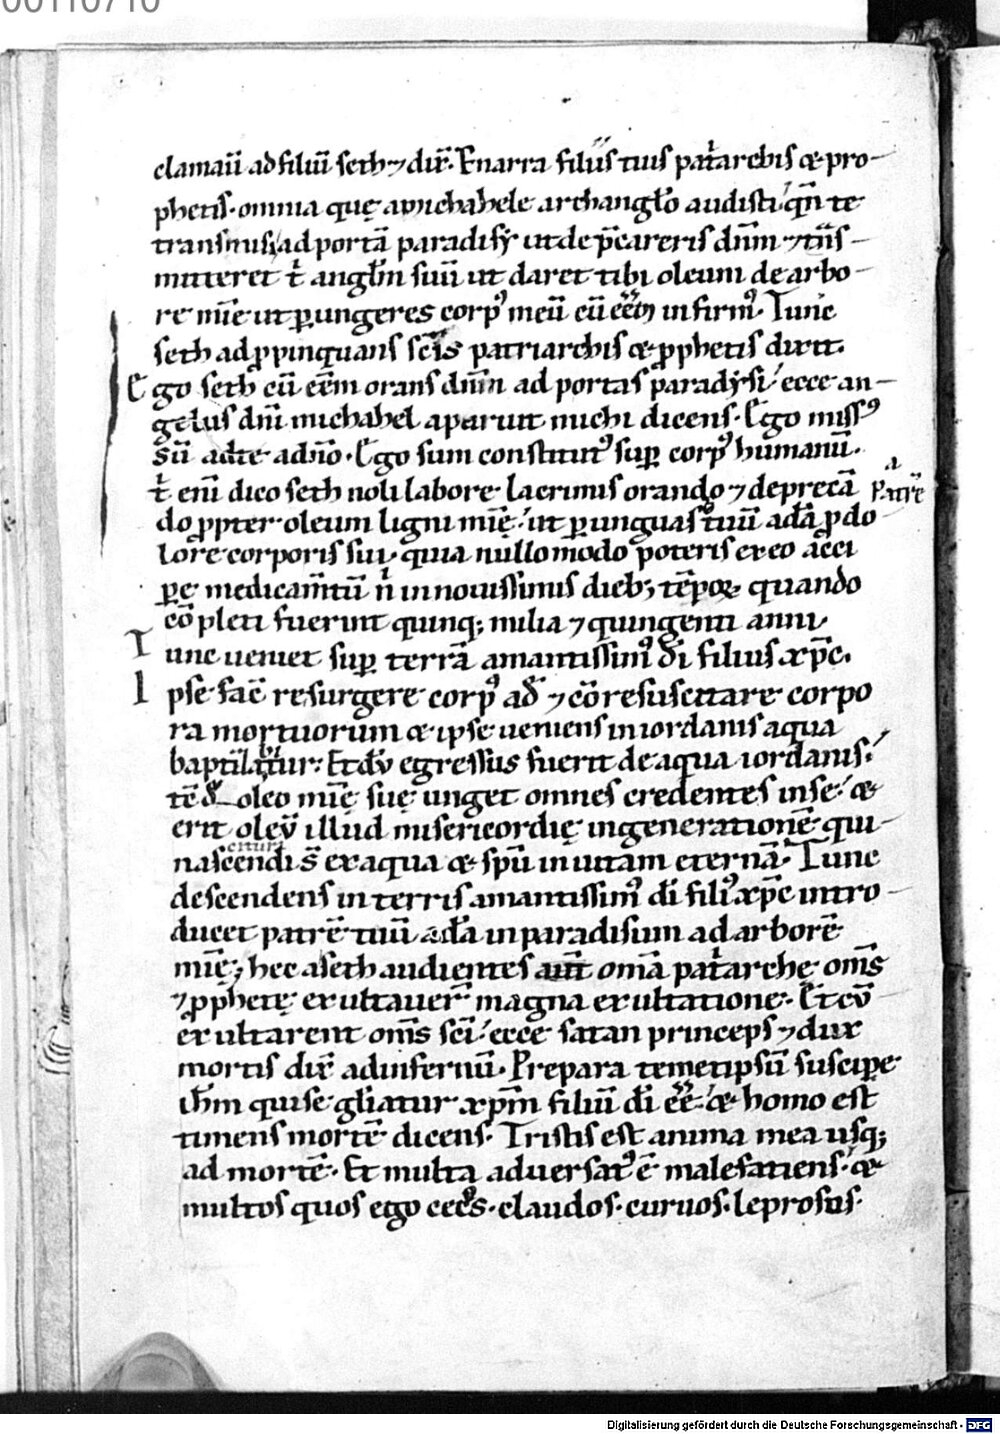 00110710
clamauı̄ ad filiū seth ⁊ dix̄. Enarra filiis tuis pat̄archis & pro-
phetis. omnia quę a michahele archangl̄o audisti. qn̄ te
transmisi ad portā paradisy ut de p̄careris dn̄m ⁊ tn̄s-
mitteret t̄ angl̄m suū ut daret tibi oleum de arbo-
re mīe ut ꝑungeres corp' meū cū eēm infirm'. Tunc
seth adꝓpinquans scīs patriarchis & ꝓphetis dixit.
Ego seth cū eēm orans dn̄m ad portas paradysi. ecce an-
gelus dn̄i michahel aparuit michi dicens. Ego miss'
sū ad te a dn̄o. Ego sum constitut' suꝑ corp' humanū.
t̄ eni dico seth noli labore lacrimis orando ⁊ deprecā
do ꝓpter oleum ligni mīę. ut ꝑunguas patrē tuū adā ꝓ do
lore corporis sui. quia nullo modo poteris ex eo acci
pe medicam̄tū n̄ in nouissimis dieb; tēpoꝝ quando
cō pleti fuerint quinq; milia ⁊ quingenti anni.
Tunc ueniet suꝑ terrā amantissim' dī filius xp̄c.
Ipse fac̄ resurgere corp' ad̄ ⁊ cōresuscitare corpo
ra mortuorum & ipse ueniens in iordanis aqua
baptizabitur. Et dū egressus fuerit de aqua iordanis.
tē d' oleo mīę suę unget omnes credentes in se. &
erit oleū illud misericordię in generationē qui-
nascituri s̄ ex aqua & sp̄u in uitam eternā. Tunc
descendens in terris amantissim' dī fili' xp̄c intro-
ducet patrē tuū adā in paradisum ad arborē
mīę; hec a seth audientes om̄a pat̄archę om̄s
⁊ ꝓphetę. exultauer̄ magna exultatione. Et cū
exultarent om̄s scī. ecce satan princeps ⁊ dux
mortis dix̄ ad infernū. Prepara temetipsū suscipe
ih̄m qui se gl̄iatur xp̄m filiū dī eē. & homo est
timens mortē dicens. Tristis est anima mea usq;
ad mortē. Et multa aduersat' ē malefatiens. &
multos quos ego cec's. claudos. curuos. leprosos.
Digitalisierung gefördert durch die Deutsche Forschungsgemeinschaft - DFG